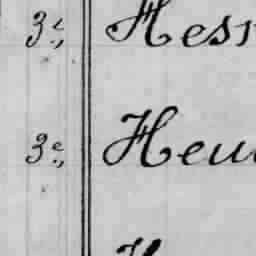 3e., Hess
3e., Heu